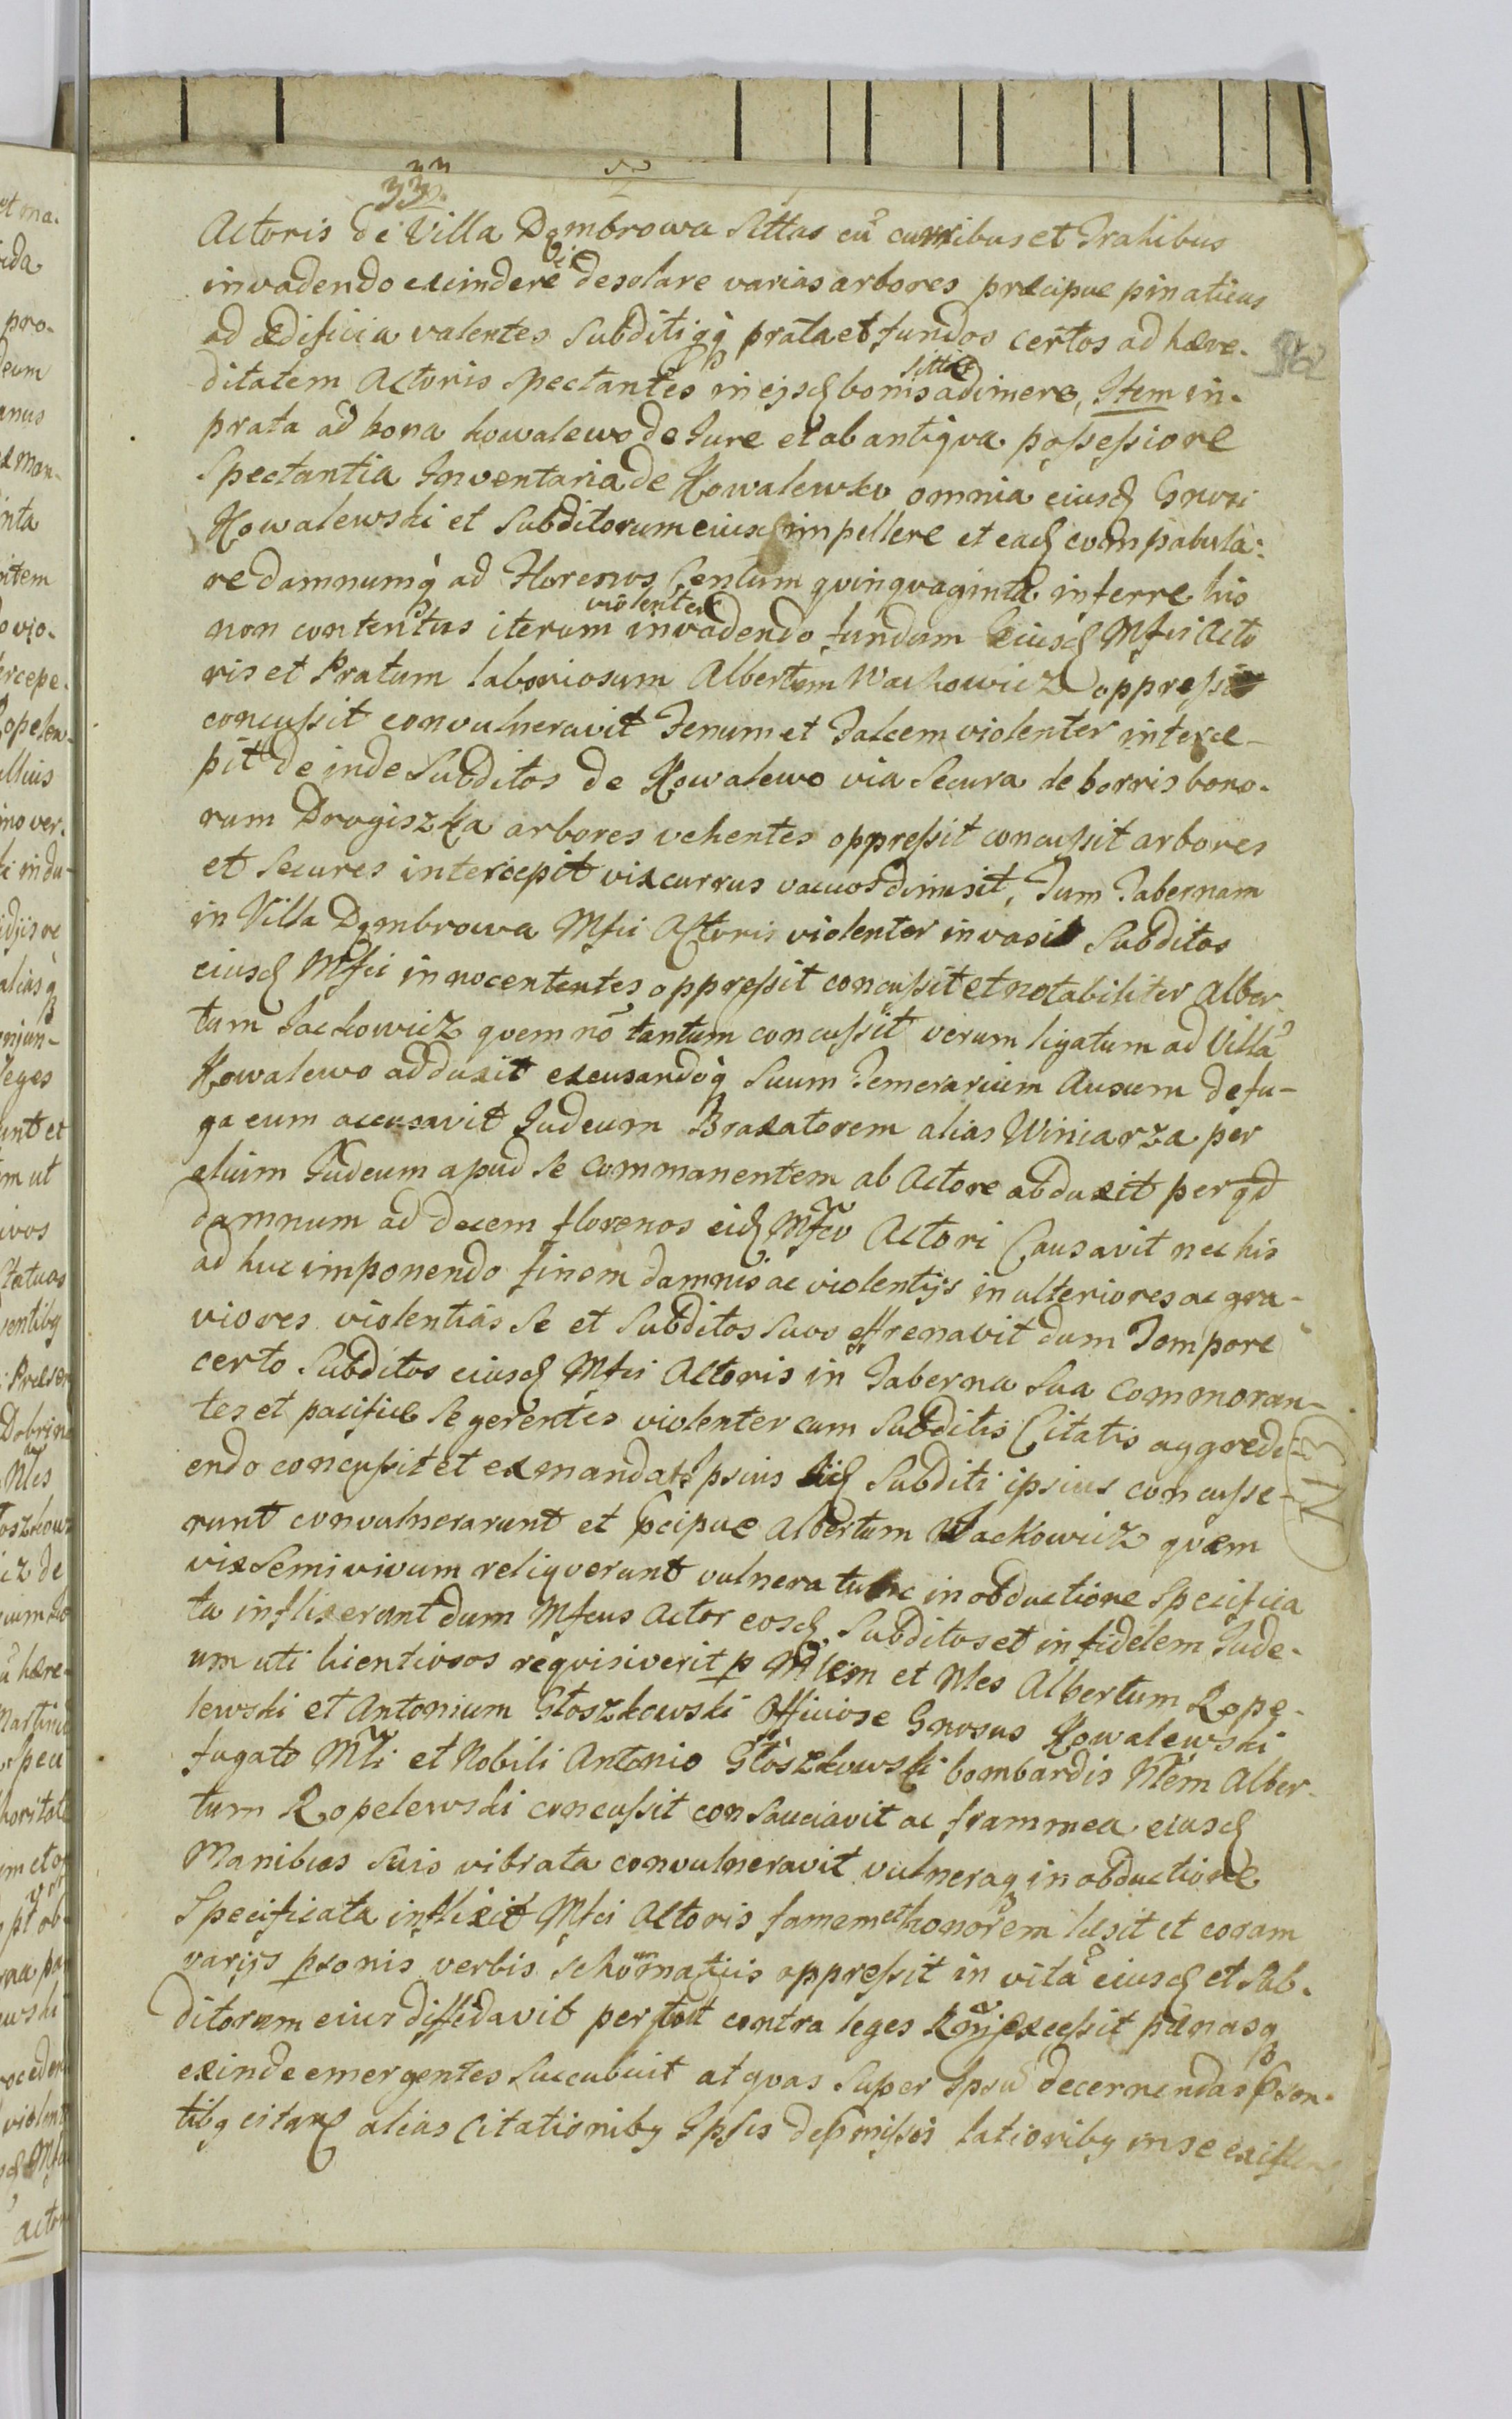 332
Actoris de Villa Dąmbrowa sittas cũ curribus et Trahibus
invadendo excindere desolare varias arbores præcipue pinaticas
ad ædificia valentes Subditiqq prata et fundos certos ad hære-
ditatem Actoris spectantes in ejsd bonis sittos adimere, Item in-
prata ad bona Kowalewo de Jure et ab antiqva possessione
Spectantia Inventaria de Kowalewko omnia eiusd Gnosi
Kowalewski et Subditorum eiusd impellere et ead condpabula:
re damnumq ad Florenos Centum qvinqvaginta inferre his
non contentus iterum violenter invadendo fundum eiusd Mfci Acto
ris et Pratum laboriosum Albertum Wackowicz oppressit
concussit convulneravit Fenum et Falcem violenter interce-
pit de inde Subditos de Kowalewo via Secura de borris bono-
rum Drogiszka arbores vehentes oppressit concussit arbores
et Secures intercepit vix currus vacuos dimisit, Tum Tabernam
in Villa Dąmbrowa Mfci Actoris violenter invasit Subditos
eiusd Mfci innocententes oppressit concussit et notabiliter Alber-
tum Jackowicz qvem nõ tantum concussit verum ligatum ad Villã
Kowalewo adduxit excusandoq Suum Temerarium Ausum de fu-
ga eum accusavit Judeum Braxatorem alias Winiarza per
alium Judeum apud Se Commanentem ab Actore abduxit per qd
damnum ad decem florenos eid Mfco Actori Causavit nec his
ad huc imponendo finem damnis ac violentijs in ulteriores ac gra-
viores violentias Se et Subditos suos effrenavit dum Tempore
certo Subditos eiusd Mfci Actoris in Taberna Sua Commoran-
tes et pacifice Se gerentes violenter cum Subditis Citatis aggredi-
endo concussit et ex mandato Ipsius iid Subditi ipsius concusse-
runt convulnerarunt et pcipue Albertum Wackowicz qvem
vix Semivivum reliqverunt vulnera tunc in obductione Specifica
ta inflixerunt dum Mfcus Actor eosd Subditos et infidelem Jude-
um uti licentiosos reqvisiverit p Nlem et Nles Albertum Rope-
lewski et Antonium Głoszkowski Officiose Gnosus Kowalewski
fugato Mti et Nobili Antonio Głoszkowski bombardis Nlem Alber-
tum Ropelewski concussit consauciavit ac frammea eiusd
Manibus suis vibrata convulneravit vulneraq in obductione
Specificata inflixit Mfci Actoris famem et honorem læsit et coram
varijs psonis verbis schommaticis oppressit in vitã eiusd et Sub-
ditorum eius diffidavit per qod contra leges Regni excessit pœnasq
exinde emergentes Succubuit at qvas Super Ipsũ decernendas
tibq citant alias Citationibq Ipsis depmissis latioribq in se